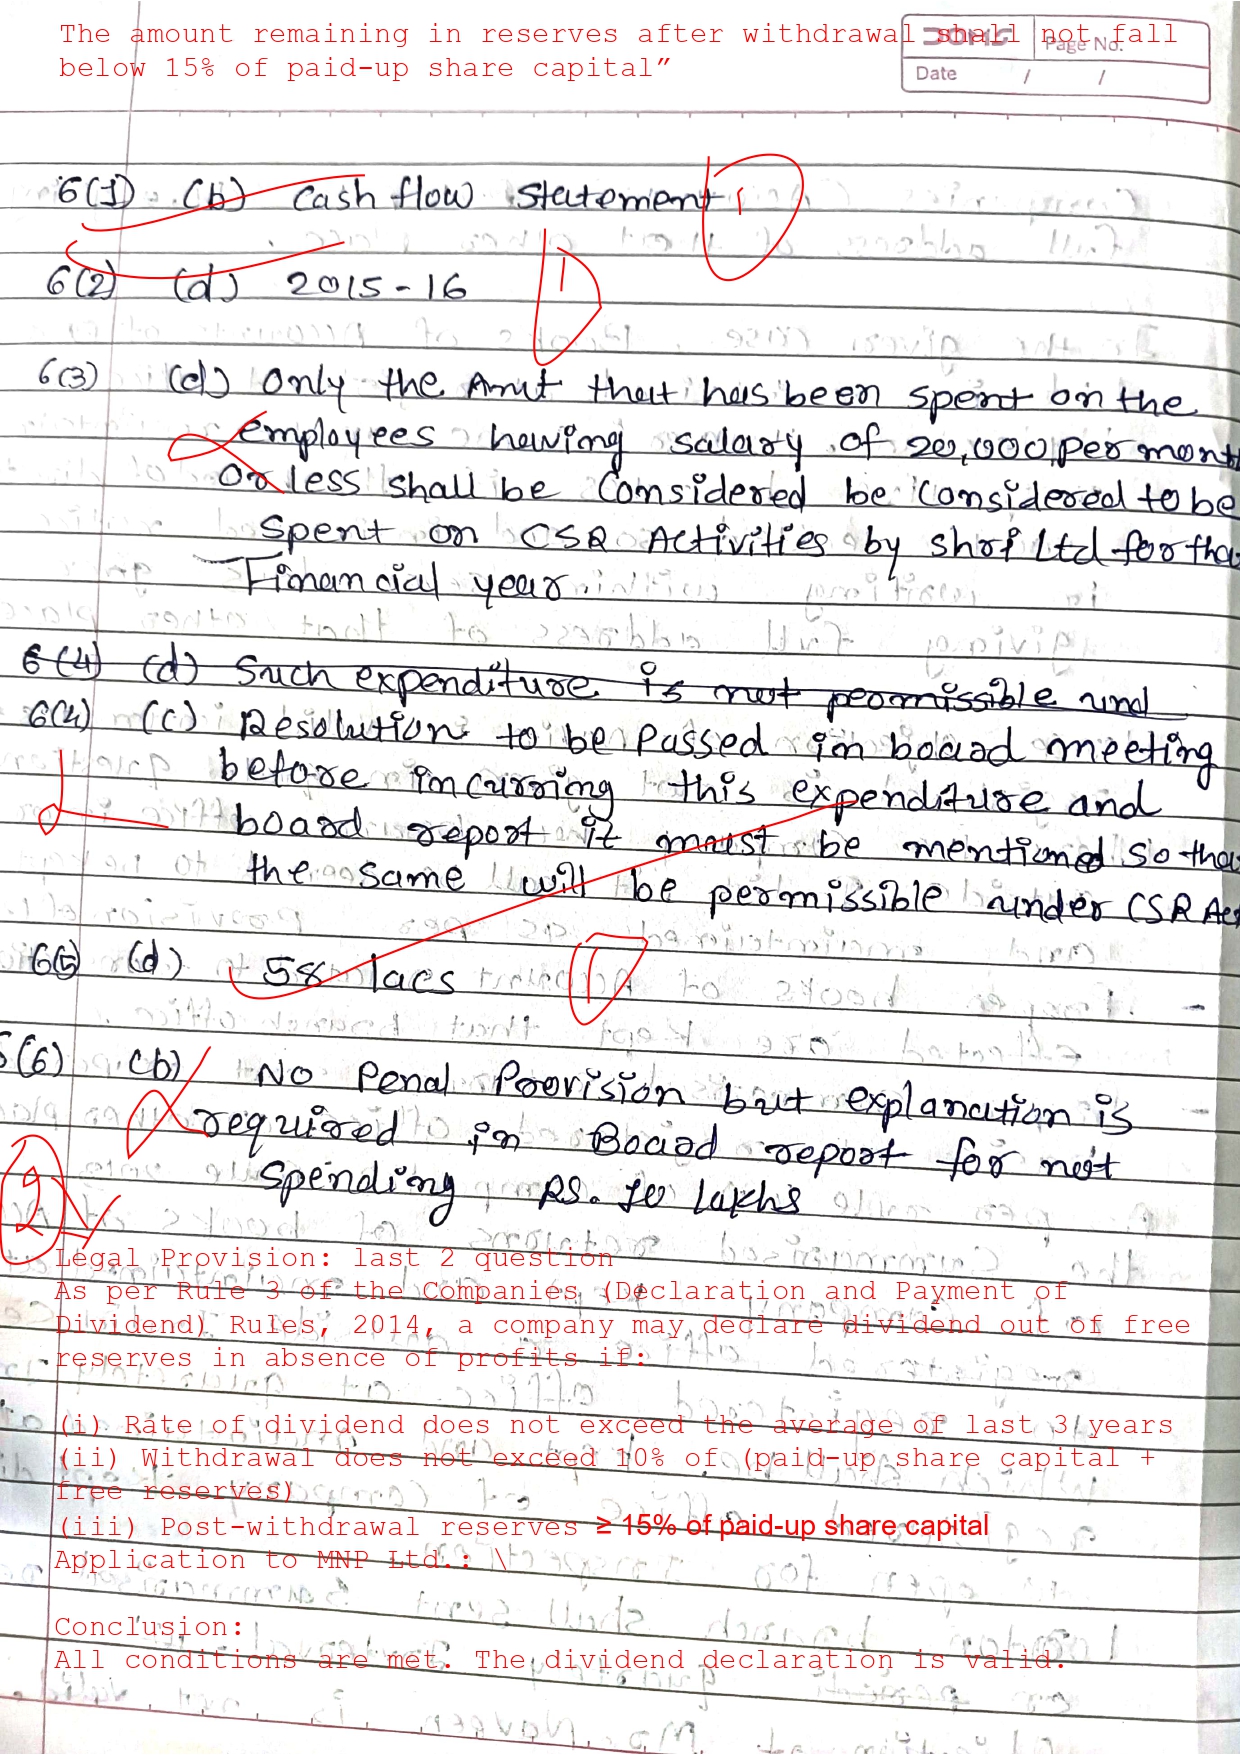 The amount remaining in reserves after withdrawal shall not fall
below 15% of paid-up share capital”
Page No.
Date / /
6(1) (b) Cash flow statement 1
6(2) (d) 2015-16 1
6(3) (d) only the Amt that has been spent on the
employees having salary of 20,000 per month
or less shall be Considered be Considered to be
spent on CSR Activities by shri Ltd for the
Financial year.
6(4) (d) Such expenditure is not permissible and
6(4) (c) Resolution to be Passed in board meeting
before incurring this expenditure and
board report it must be mentioned so that
the same will be permissible under CSR Act
6(5) (d) 58 lacs 1
6(6) (b) No Penal Provision but explanation is
required in Board report for not
spending RS. 10 lakhs
Legal Provision: last 2 question
As per Rule 3 of the Companies (Declaration and Payment of
Dividend) Rules, 2014, a company may declare dividend out of free
reserves in absence of profits if:
(i) Rate of dividend does not exceed the average of last 3 years
(ii) Withdrawal does not exceed 10% of (paid-up share capital +
free reserves)
(iii) Post-withdrawal reserves ≥ 15% of paid-up share capital
Application to MNP Ltd.: \
Conclusion:
All conditions are met. The dividend declaration is valid.